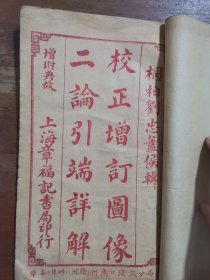 桐柏劉忠藎侯輯
校正增訂圖像
二論引端詳解
增坿典故
上海章福記書局印行